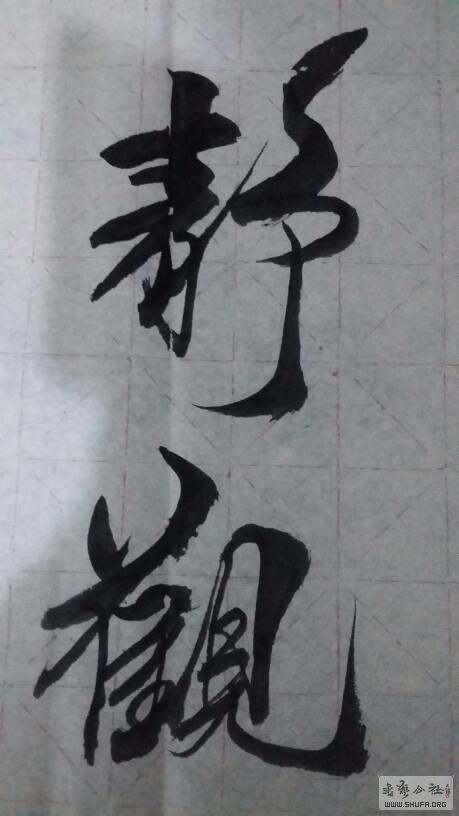 靜觀
书艺公社
WWW.SHUFA.ORG